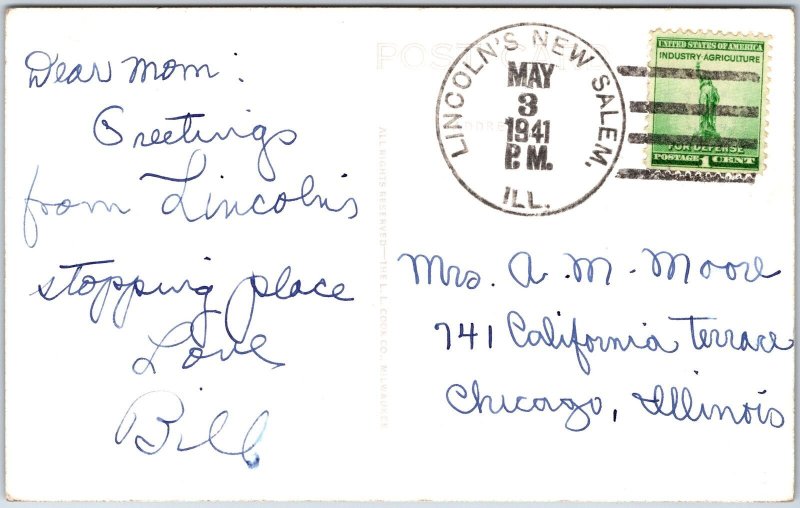 Dear Mom:
Greetings
from Lincoln's
stopping place
Love
Bill
POST CARD
ALL RIGHTS RESERVED—THE L.L. COOK CO., MILWAUKEE
LINCOLN'S NEW SALEM,
MAY
3
1941
P.M.
ILL.
UNITED STATES OF AMERICA
INDUSTRY AGRICULTURE
FOR DEFENSE
POSTAGE 1 CENT
Mrs. A. M. Moore
741 California Terrace
Chicago, Illinois